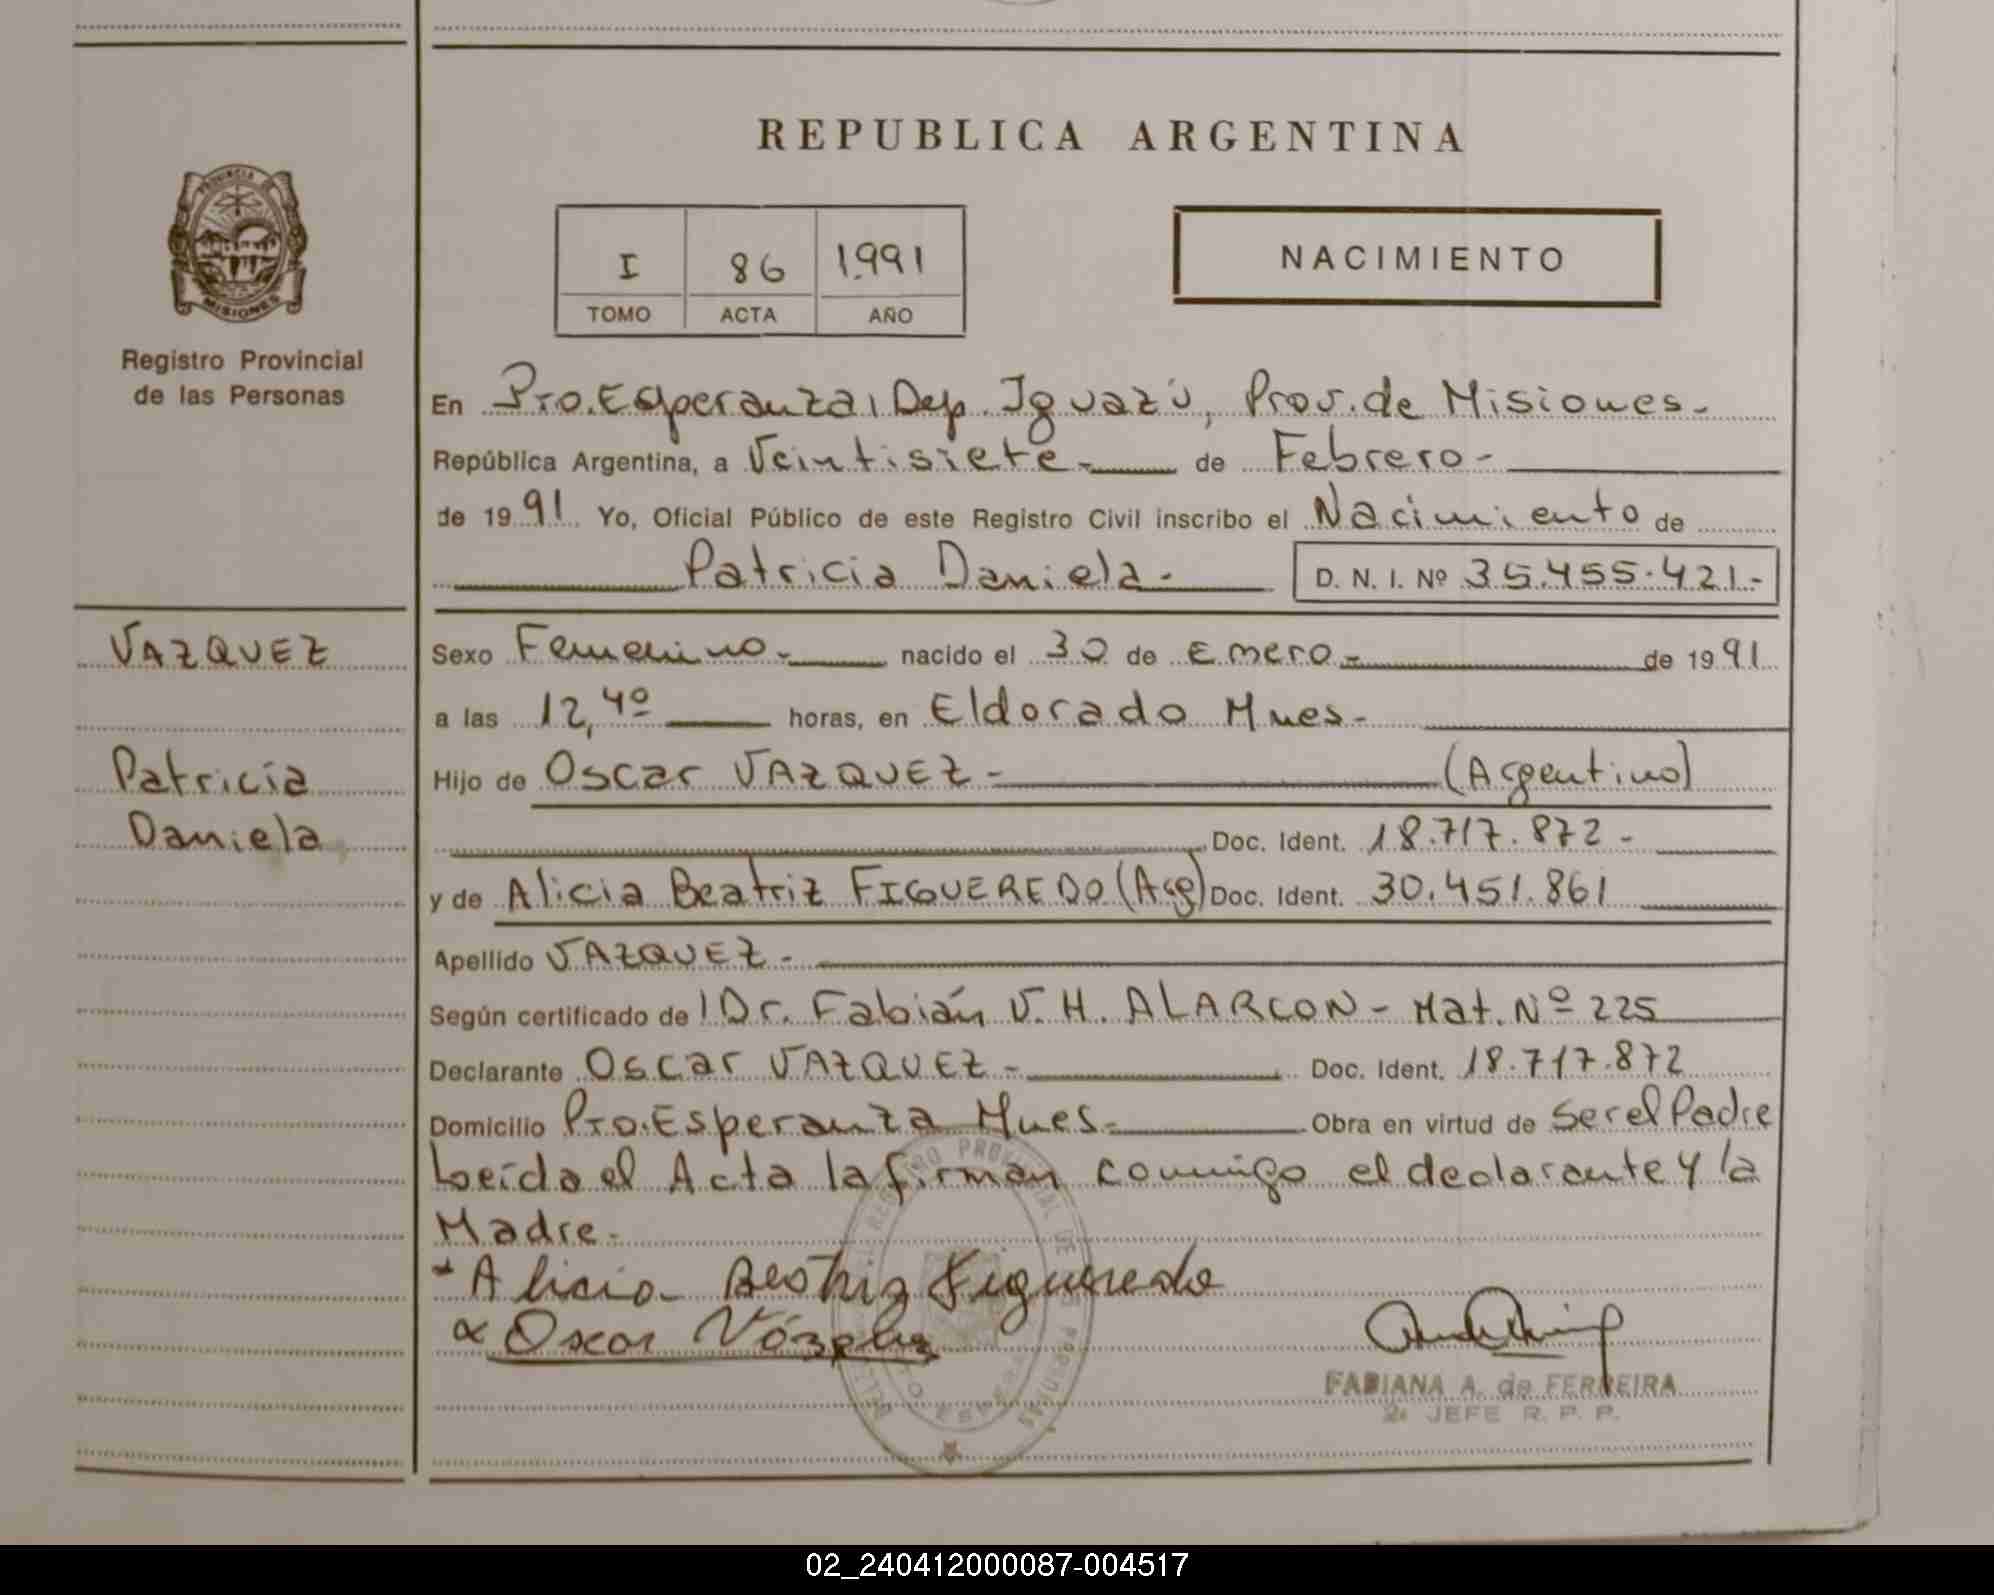 REPUBLICA ARGENTINA
I 86 1.991
TOMO ACTA AÑO
NACIMIENTO
PROVINCIA DE
MISIONES
Registro Provincial
de las Personas
En Pto. Esperanza, Dep. Iguazú, Prov. de Misiones.-
República Argentina, a Veintisiete.- de Febrero-
de 1991 Yo, Oficial Público de este Registro Civil inscribo el Nacimiento de
Patricia Daniela.- D. N. I. Nº 35.455.421.-
VAZQUEZ
Patricia
Daniela
Sexo Femenino.- nacido el 30 de Enero.- de 1991
a las 12,40 horas, en Eldorado Mnes.-
Hijo de Oscar VAZQUEZ.- (Argentino)
Doc. Ident. 18.717.872.-
y de Alicia Beatriz FIGUEREDO (Arg) Doc. Ident. 30.451.861
Apellido VAZQUEZ.-
Según certificado de Dr. Fabián V. H. ALARCON - Mat. Nº 225
Declarante Oscar VAZQUEZ.- Doc. Ident. 18.717.872
Domicilio Pto. Esperanza Mnes.- Obra en virtud de Ser el Padre
Leída el Acta la firman conmigo el declarante y la
Madre.-
Alicia Beatriz Figueredo
Oscar Vázquez
FABIANA A. de FERREIRA
2º JEFE R. P. P.
02_240412000087-004517